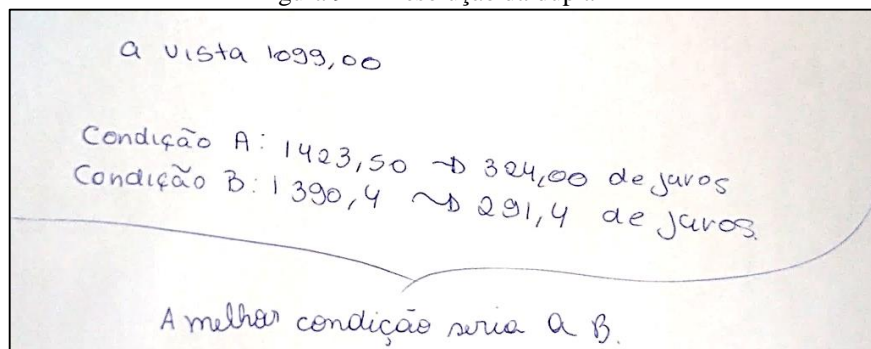 a vista 1099,00
Condição A: 1423,50 → 324,00 de juros
Condição B: 1390,4 → 291,4 de juros.
A melhor condição seria a B.